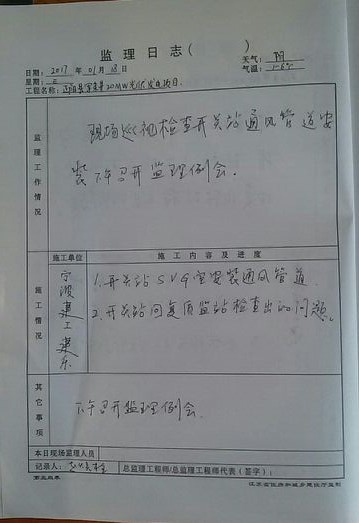 监理日志（ ）
日期：2017 年 01 月 18 日 天气：阴
星期：三 气温：
工程名称： 20MW光伏发电项目.
监理工作情况
现场巡视检查开关站通风管道安
装 下午召开监理例会.
施工单位 施工内容及进度
施工情况
宁波建工建乐
1.开关站SVG室安装通风管道
2.开关站回复质监站检查出的问题。
其它事项
下午召开监理例会.
本日现场监理人员
记录人： 总监理工程师/总监理工程师代表（签字）：
第五版表 江苏省住房和城乡建设厅监制